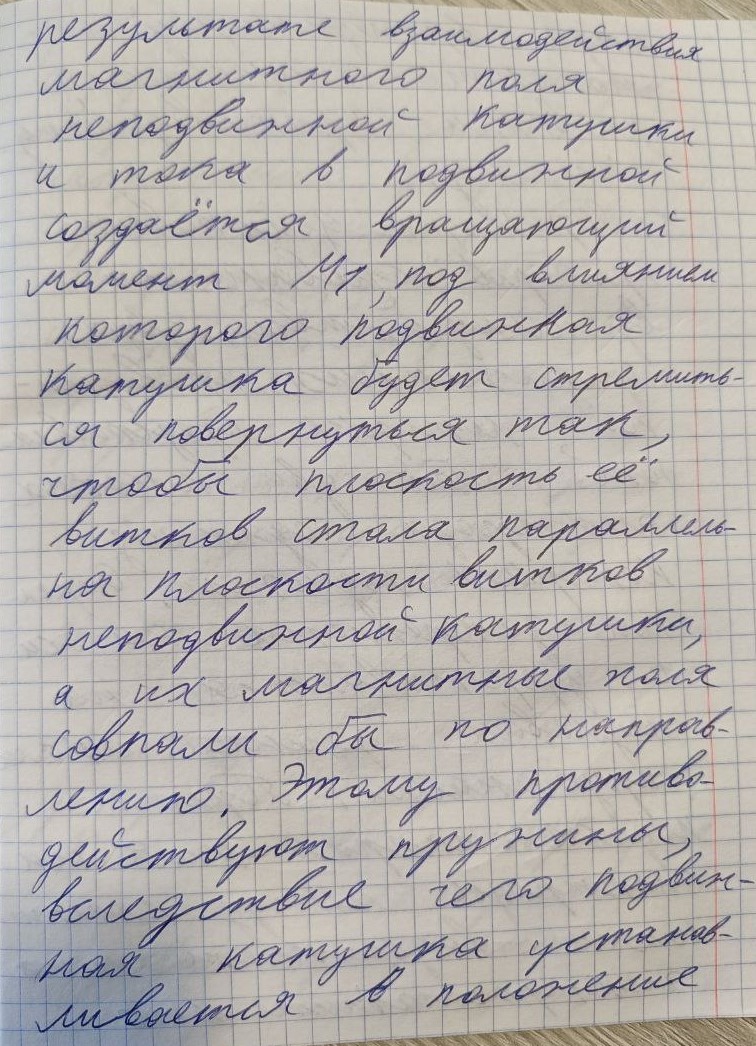 результате взаимодействия
магнитного поля
неподвижной катушки
и тока в подвижной
создаётся вращающий
момент М1, под влиянием
которого подвижная
катушка будет стремить-
ся повернуться так,
чтобы плоскость её
витков стала параллель-
на плоскости витков
неподвижной катушки,
а их магнитные поля
совпали бы по направ-
лению. Этому противо-
действуют пружины,
вследствие чего подвиж-
ная катушка устанав-
ливается в положение